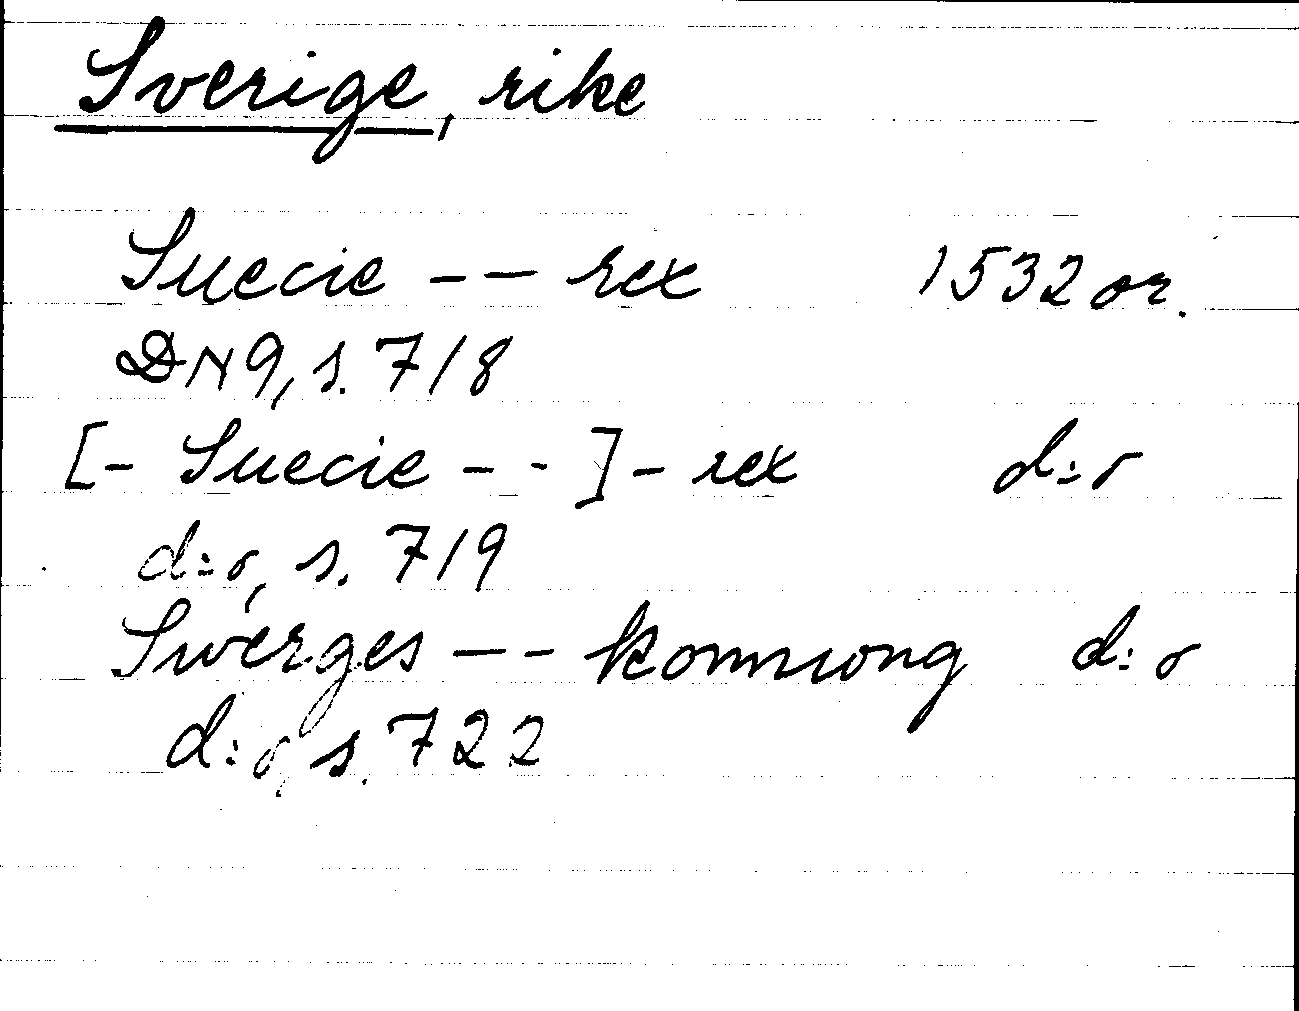 Sverige, rike
Suecie -- rex 1532 or.
DN 9, s. 718
[- Suecie --] - rex d:o
d:o, s. 719
Swerges -- konnwng d:o
d:o, s. 722